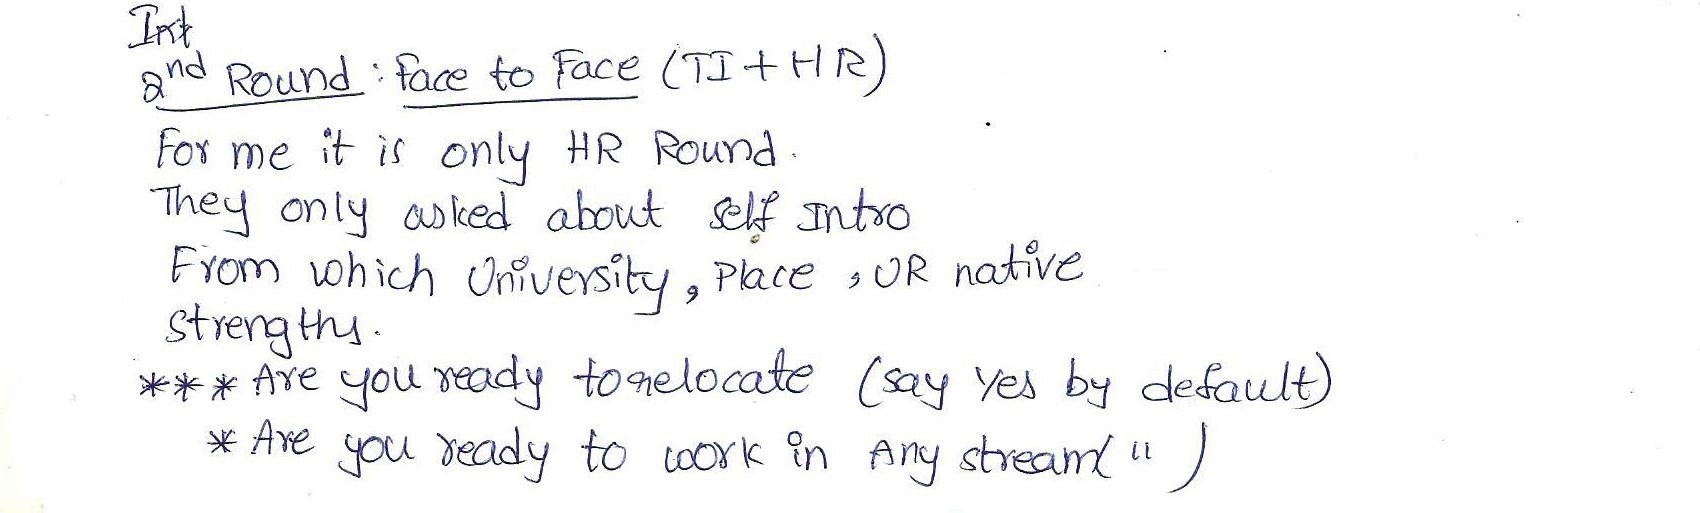 Int
2nd Round : Face to Face (TI + HR)
For me it is only HR Round.
They only asked about self Intro
From which University, Place , UR native
strengths.
*** Are you ready to relocate (say yes by default)
* Are you ready to work in Any stream( " )